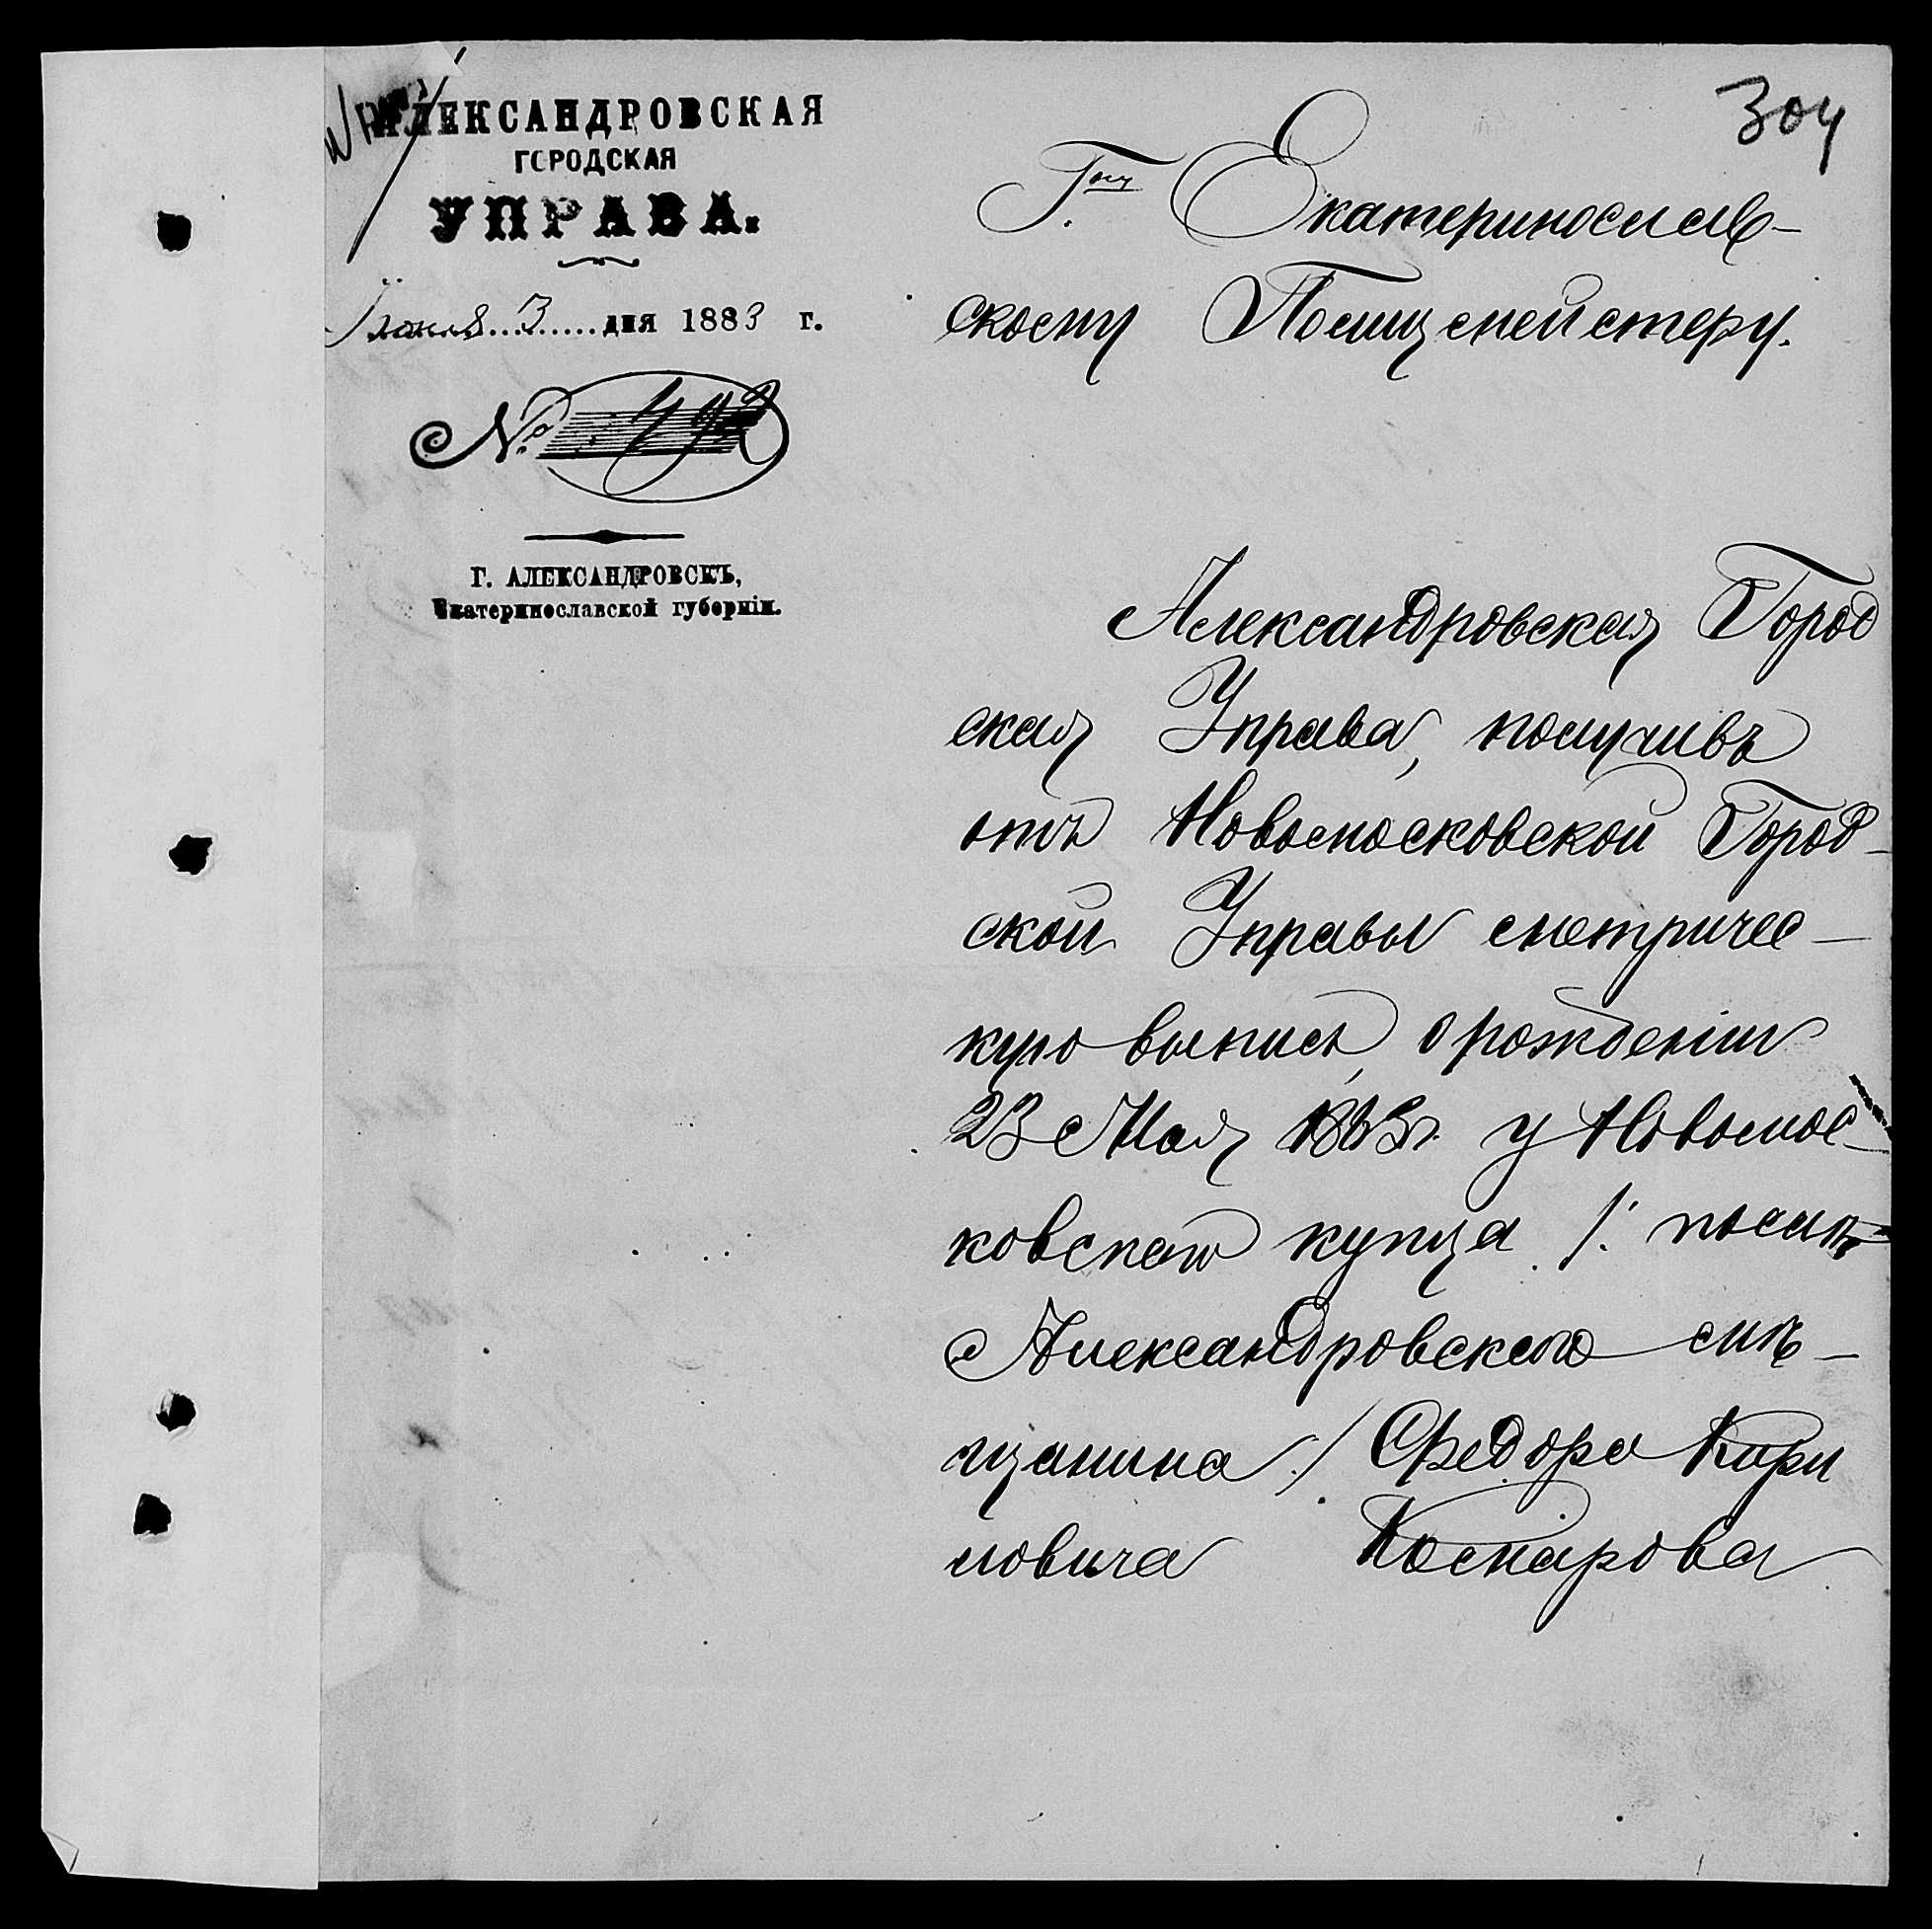 АЛЕКСАНДРОВСКАЯ
ГОРОДСКАЯ
УПРАВА.
3 дня 1883 г.
№ 492
Г. АЛЕКСАНДРОВСКЪ,
Екатеринославской губерніи.
304
Г.ну Екатеринослав-
скому Полицмейстеру.
Александровская Город
ская Управа, получивъ
отъ Новомосковской Город-
ской Управы метричес-
кую выпись, о рожденіи
23 Мая 1863 г. у Новомос-
ковскаго купца /: нынѣ
Александровскаго мѣ-
щанина :/ Федора Кири
ловича Комарова